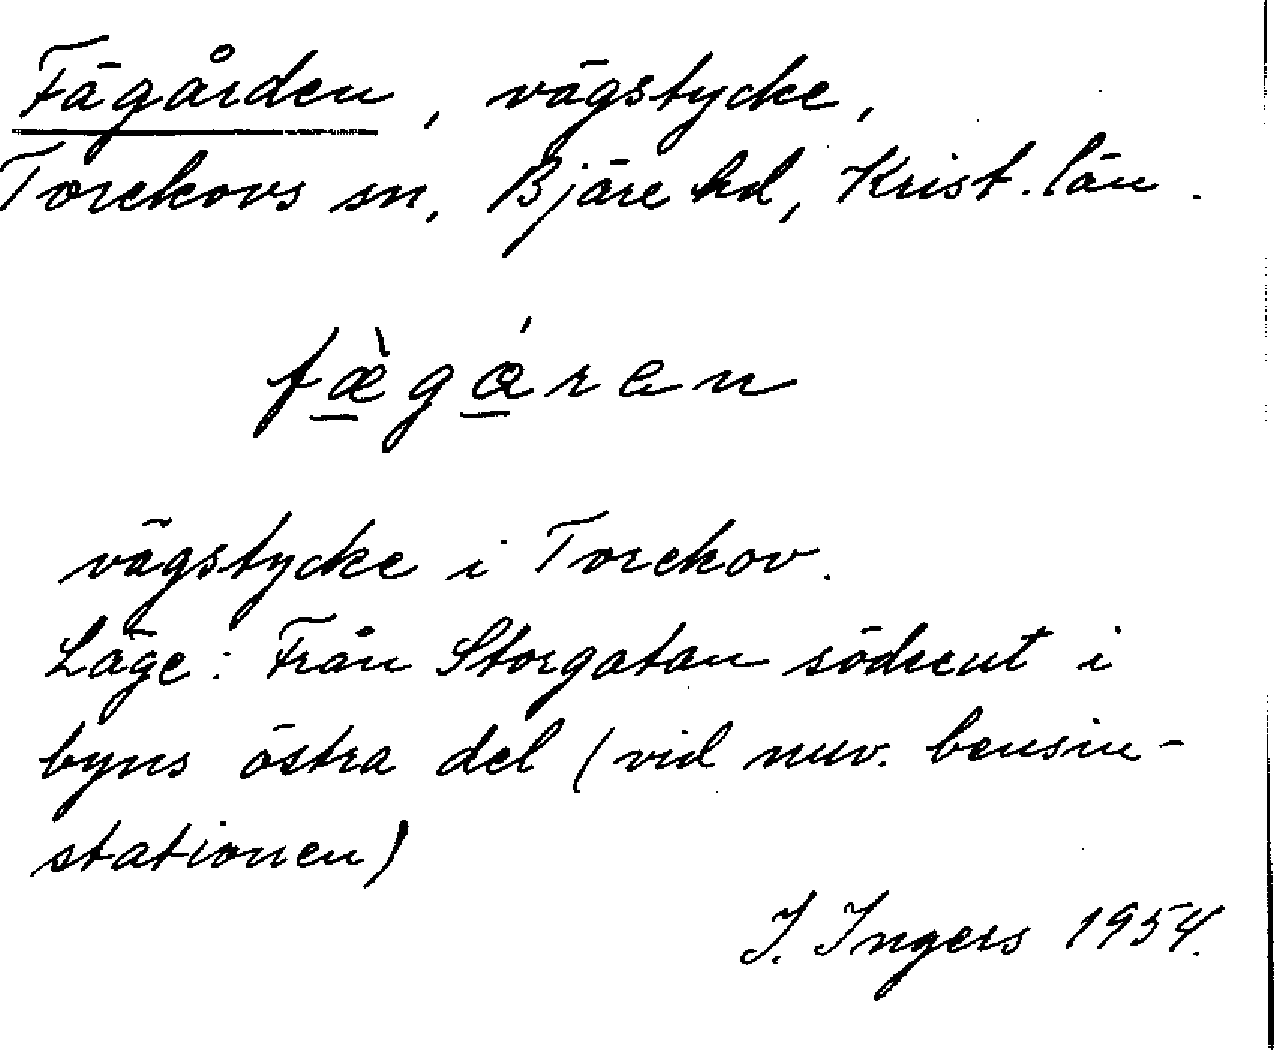 Fägården, vägstycke,
Torekovs sn, Bjäre hd, Krist. län.
fæ̱̀gɑ̱́ren
vägstycke i Torekov.
Läge: Från Storgatan söderut i
byns östra del (vid nuv. bensin-
stationen)
I. Ingers 1954.